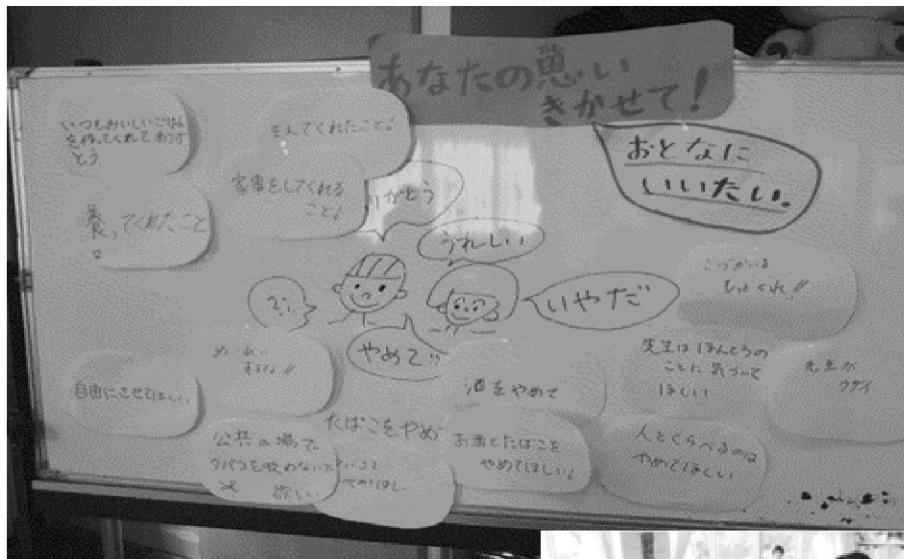 あなたの思い
きかせて!
おとなに
いいたい。
いつもおいしいごはん
を作ってくれてありが
とう
生んでくれたこと!
家事をしてくれる
こと!
養ってくれたこと
。
りがとう
うれしい
いやだ
やめて!!
こづかいを
もっとくれ!!
めーれー
するな!!
自由にさせてほしい
酒をやめて
先生はほんとうの
ことに気づいて
ほしい
先生が
クサイ
たばこをやめ
公共の場で
タバコを吸わないで
欲しい
お酒とたばこを
やめてほしい!
人とくらべるのは
やめてほしい